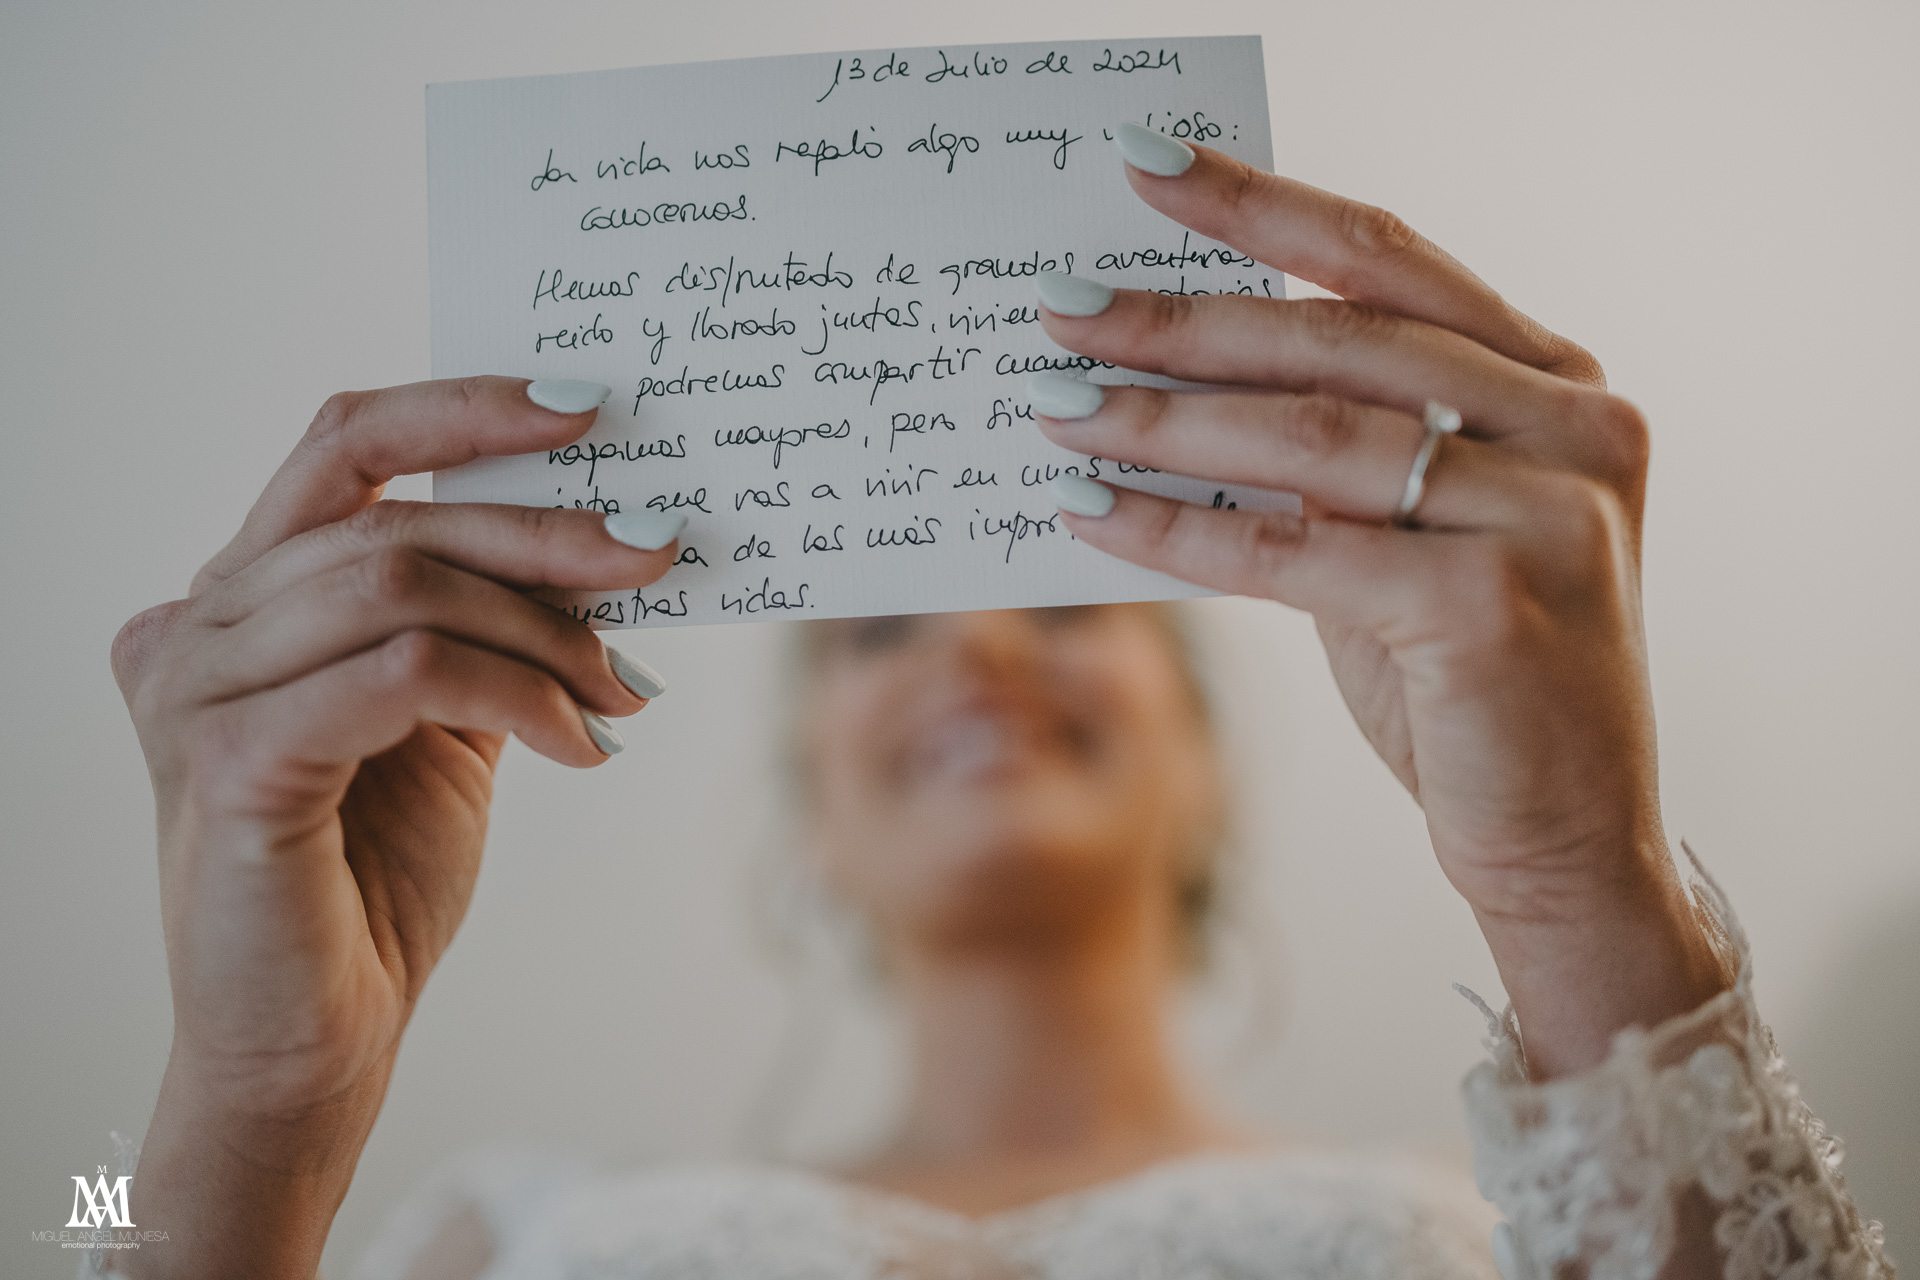 13 de Julio de 2024
La vida nos regaló algo muy
conocernos.
Hemos disfrutado de grandes aventuras
reído y llorado juntas,
podremos compartir cuando
hagamos mayores, pero
que vas a vivir en unas
de las más
nuestras vidas.
MIGUEL ANGEL MUNIESA
emotional photography